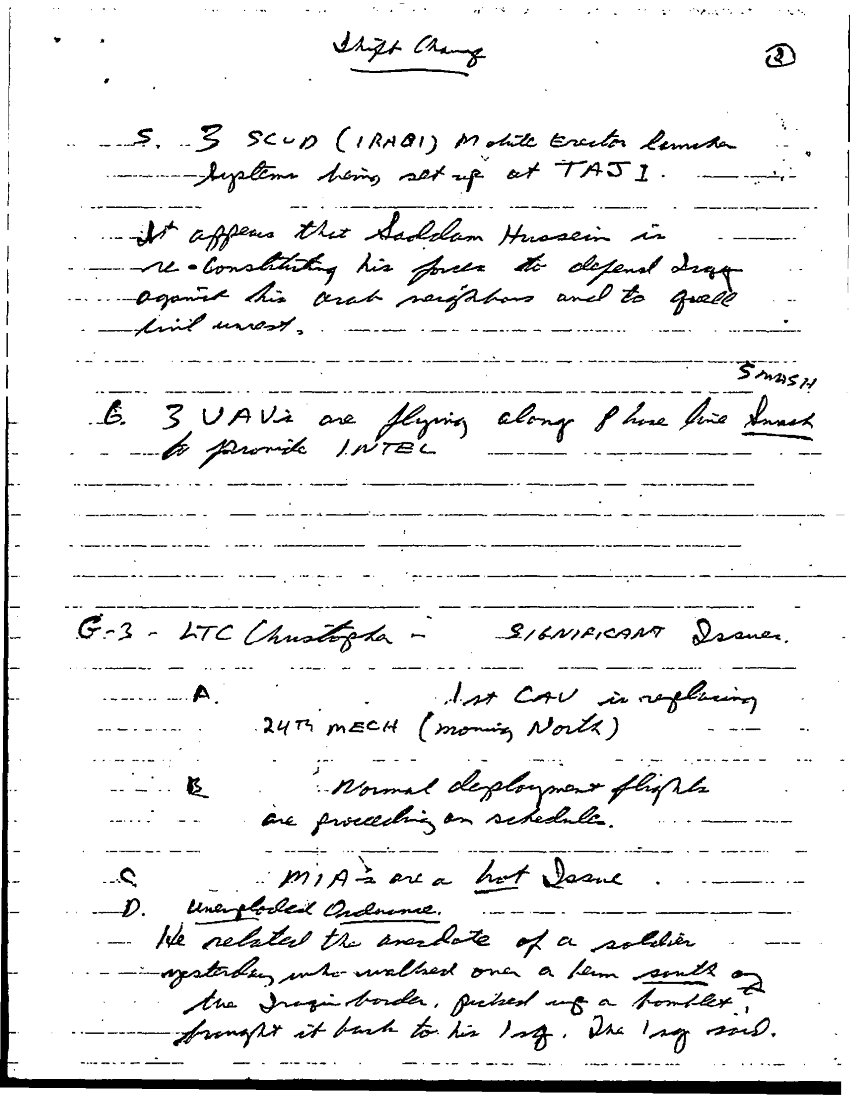 Shift Change
2
5. 3 SCUD (IRAQI) Mobile Erector launcher
systems being set up at TAJI.
It appears that Saddam Hussein is
re-constituting his forces to defend Iraq
against his arab neighbors and to quell
civil unrest.
SMASH
6. 3 UAV's are flying along Phase line Smash
to provide INTEL
G-3 - LTC Christopher - SIGNIFICANT Issues.
A. 1st CAV is replacing
24TH MECH (moving North)
B Normal deployment flights
are proceeding on schedule.
C MIA's are a hot Issue.
D. Unexploded Ordnance.
He related the anecdote of a soldier
yesterday who walked over a berm south of
the Iraqi border, picked up a bomblet,
brought it back to his 1sg. The 1sg said.